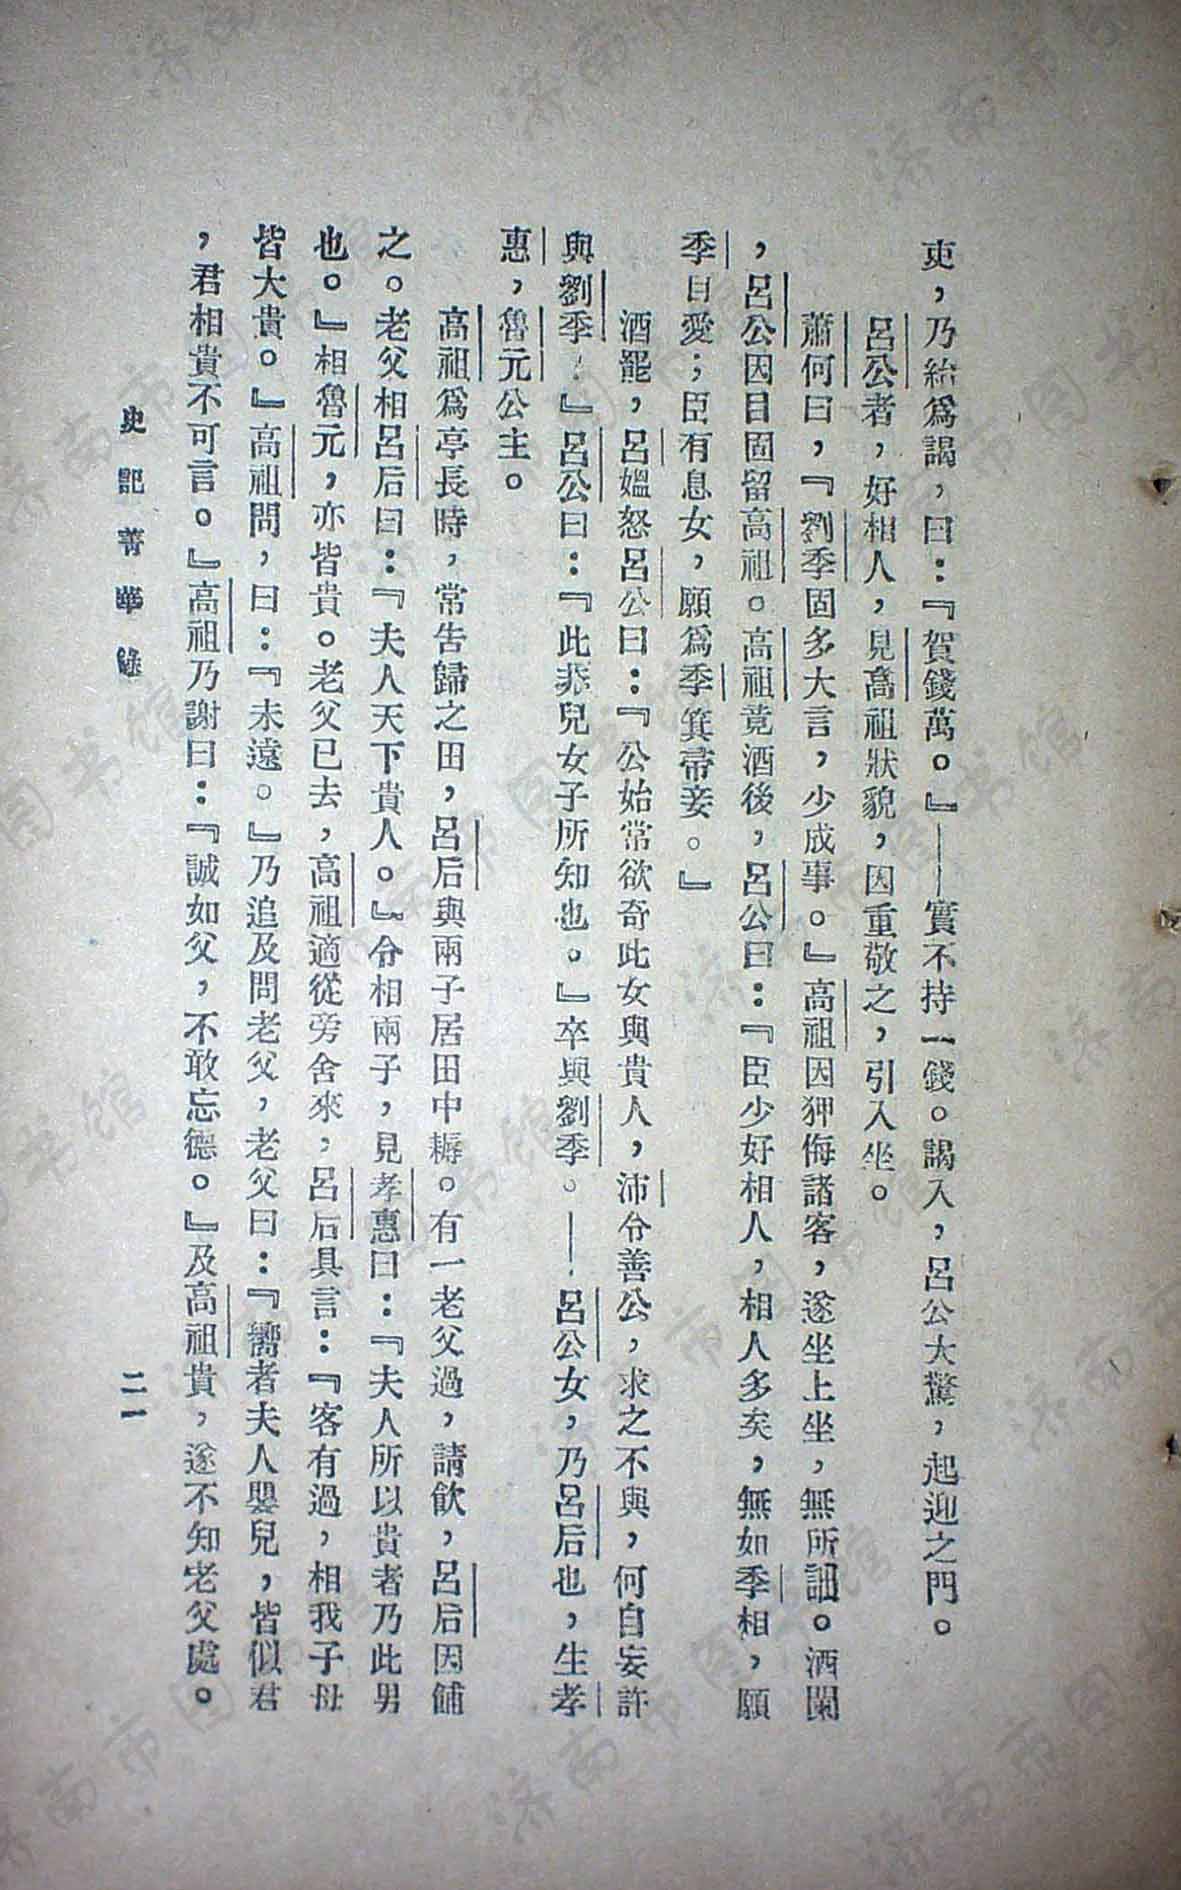 吏，乃紿爲謁，曰：『賀錢萬。』——實不持一錢。謁入，呂公大驚，起迎之門。
呂公者，好相人，見高祖狀貌，因重敬之，引入坐。
蕭何曰，『劉季固多大言，少成事。』高祖因狎侮諸客，遂坐上坐，無所詘。酒闌
，呂公因目固留高祖。高祖竟酒後，呂公曰：『臣少好相人，相人多矣，無如季相，願
季自愛；臣有息女，願爲季箕帚妾。』
酒罷，呂媼怒呂公曰：『公始常欲奇此女與貴人，沛令善公，求之不與，何自妄許
與劉季？』呂公曰：『此非兒女子所知也。』卒與劉季。——呂公女，乃呂后也，生孝
惠，魯元公主。
高祖爲亭長時，常告歸之田，呂后與兩子居田中耨。有一老父過，請飲，呂后因餔
之。老父相呂后曰：『夫人天下貴人。』令相兩子，見孝惠曰：『夫人所以貴者乃此男
也。』相魯元，亦皆貴。老父已去，高祖適從旁舍來，呂后具言：『客有過，相我子母
皆大貴。』高祖問，曰：『未遠。』乃追及問老父，老父曰：『嚮者夫人嬰兒，皆似君
，君相貴不可言。』高祖乃謝曰：『誠如父，不敢忘德。』及高祖貴，遂不知老父處。
史記菁華錄
二一
济南市图书馆